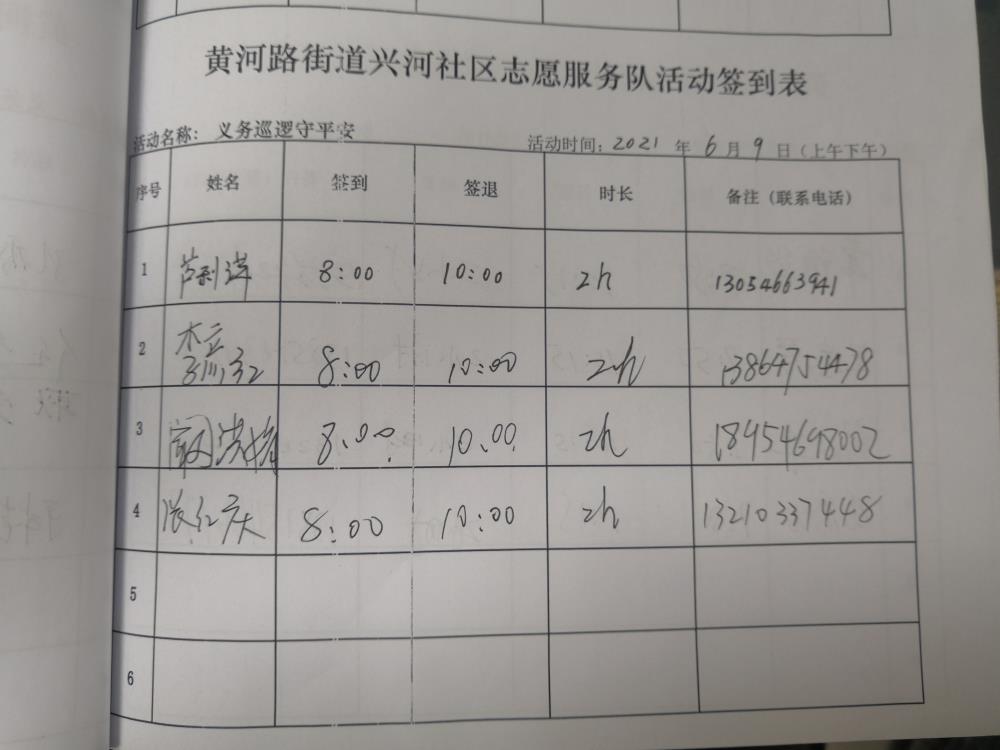 黄河路街道兴河社区志愿服务队活动签到表
活动名称： 义务巡逻守平安 活动时间：2021 年 6 月 9 日（上午下午）
序号 姓名 签到 签退 时长 备注（联系电话）
1 芦利萍 8:00 10:00 2h 13054663941
2 8:00 10:00 2h 13864754478
3 8:00 10:00 2h 18954698002
4 张红庆 8:00 10:00 2h 13210337448
5
6